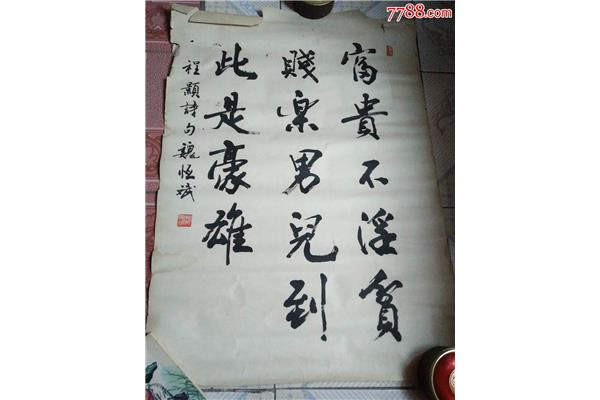 富貴不淫貧
賤樂男兒到
此是豪雄
程顥詩句魏恆斌
7788.com